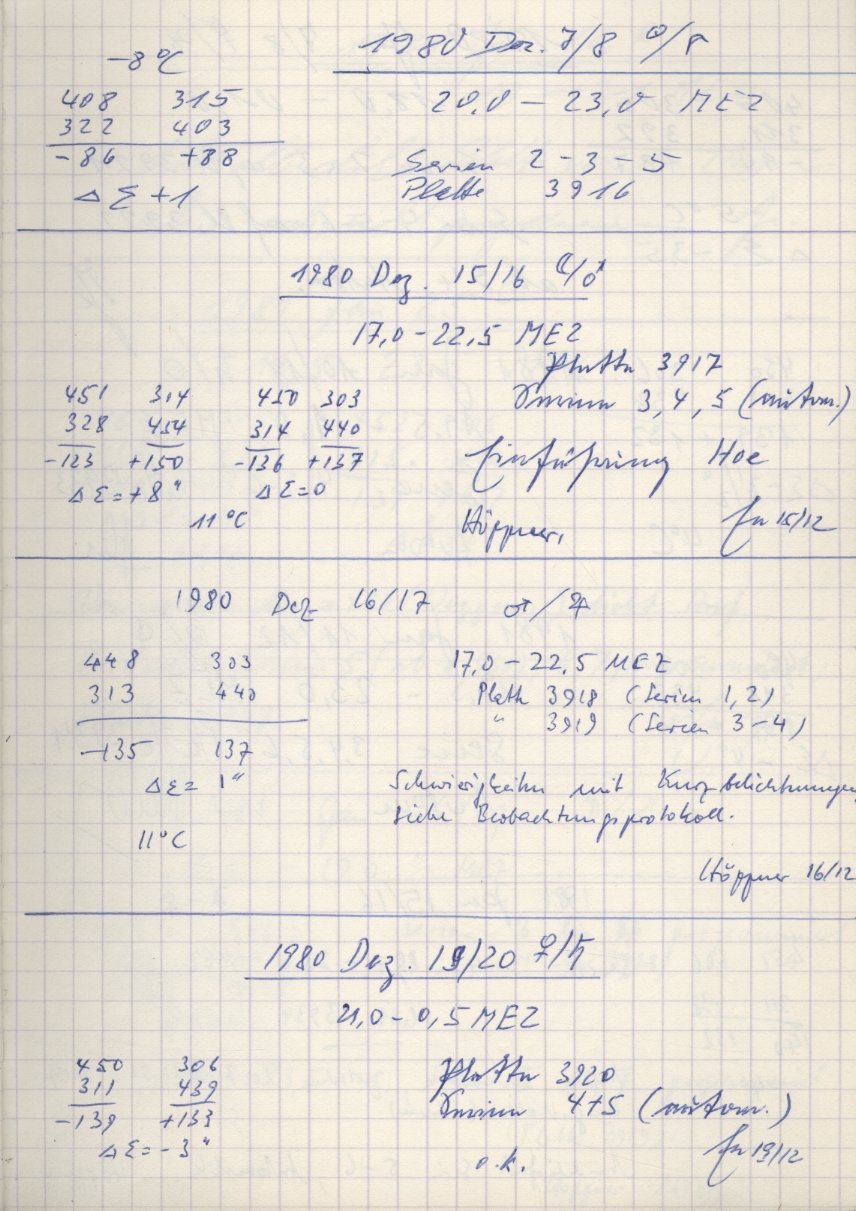 1980 Dez. 7/8
-8°C
20,0 – 23,0 MEZ
408 315
322 403
-86 +88
Serien 2-3-5
Platte 3916
Δ Σ +1
1980 Dez. 15/16 ☾/♂
17,0 – 22,5 MEZ
Platte 3917
451 314 450 303
Serien 3, 4, 5 (autom.)
328 454 314 440
-123 +150 -136 +137
Einführung Hoe
Δ Σ = +8" Δ Σ = 0
11°C
Höppner,
15/12
1980 Dez 16/17 ♂/☿
448 303
17,0 – 22,5 MEZ
313 440
Platte 3918 (Serien 1, 2)
" 3919 (Serien 3-4)
-135 137
Δ Σ = 1"
Schwierigkeiten mit Kurzbelichtungen
siehe Beobachtungsprotokoll.
11°C
Höppner 16/12
1980 Dez. 19/20 ♀/♄
21,0 – 0,5 MEZ
450 306
Platte 3920
311 439
Serien 4+5 (autom.)
-139 +133
Δ Σ = -3"
o.k.
19/12